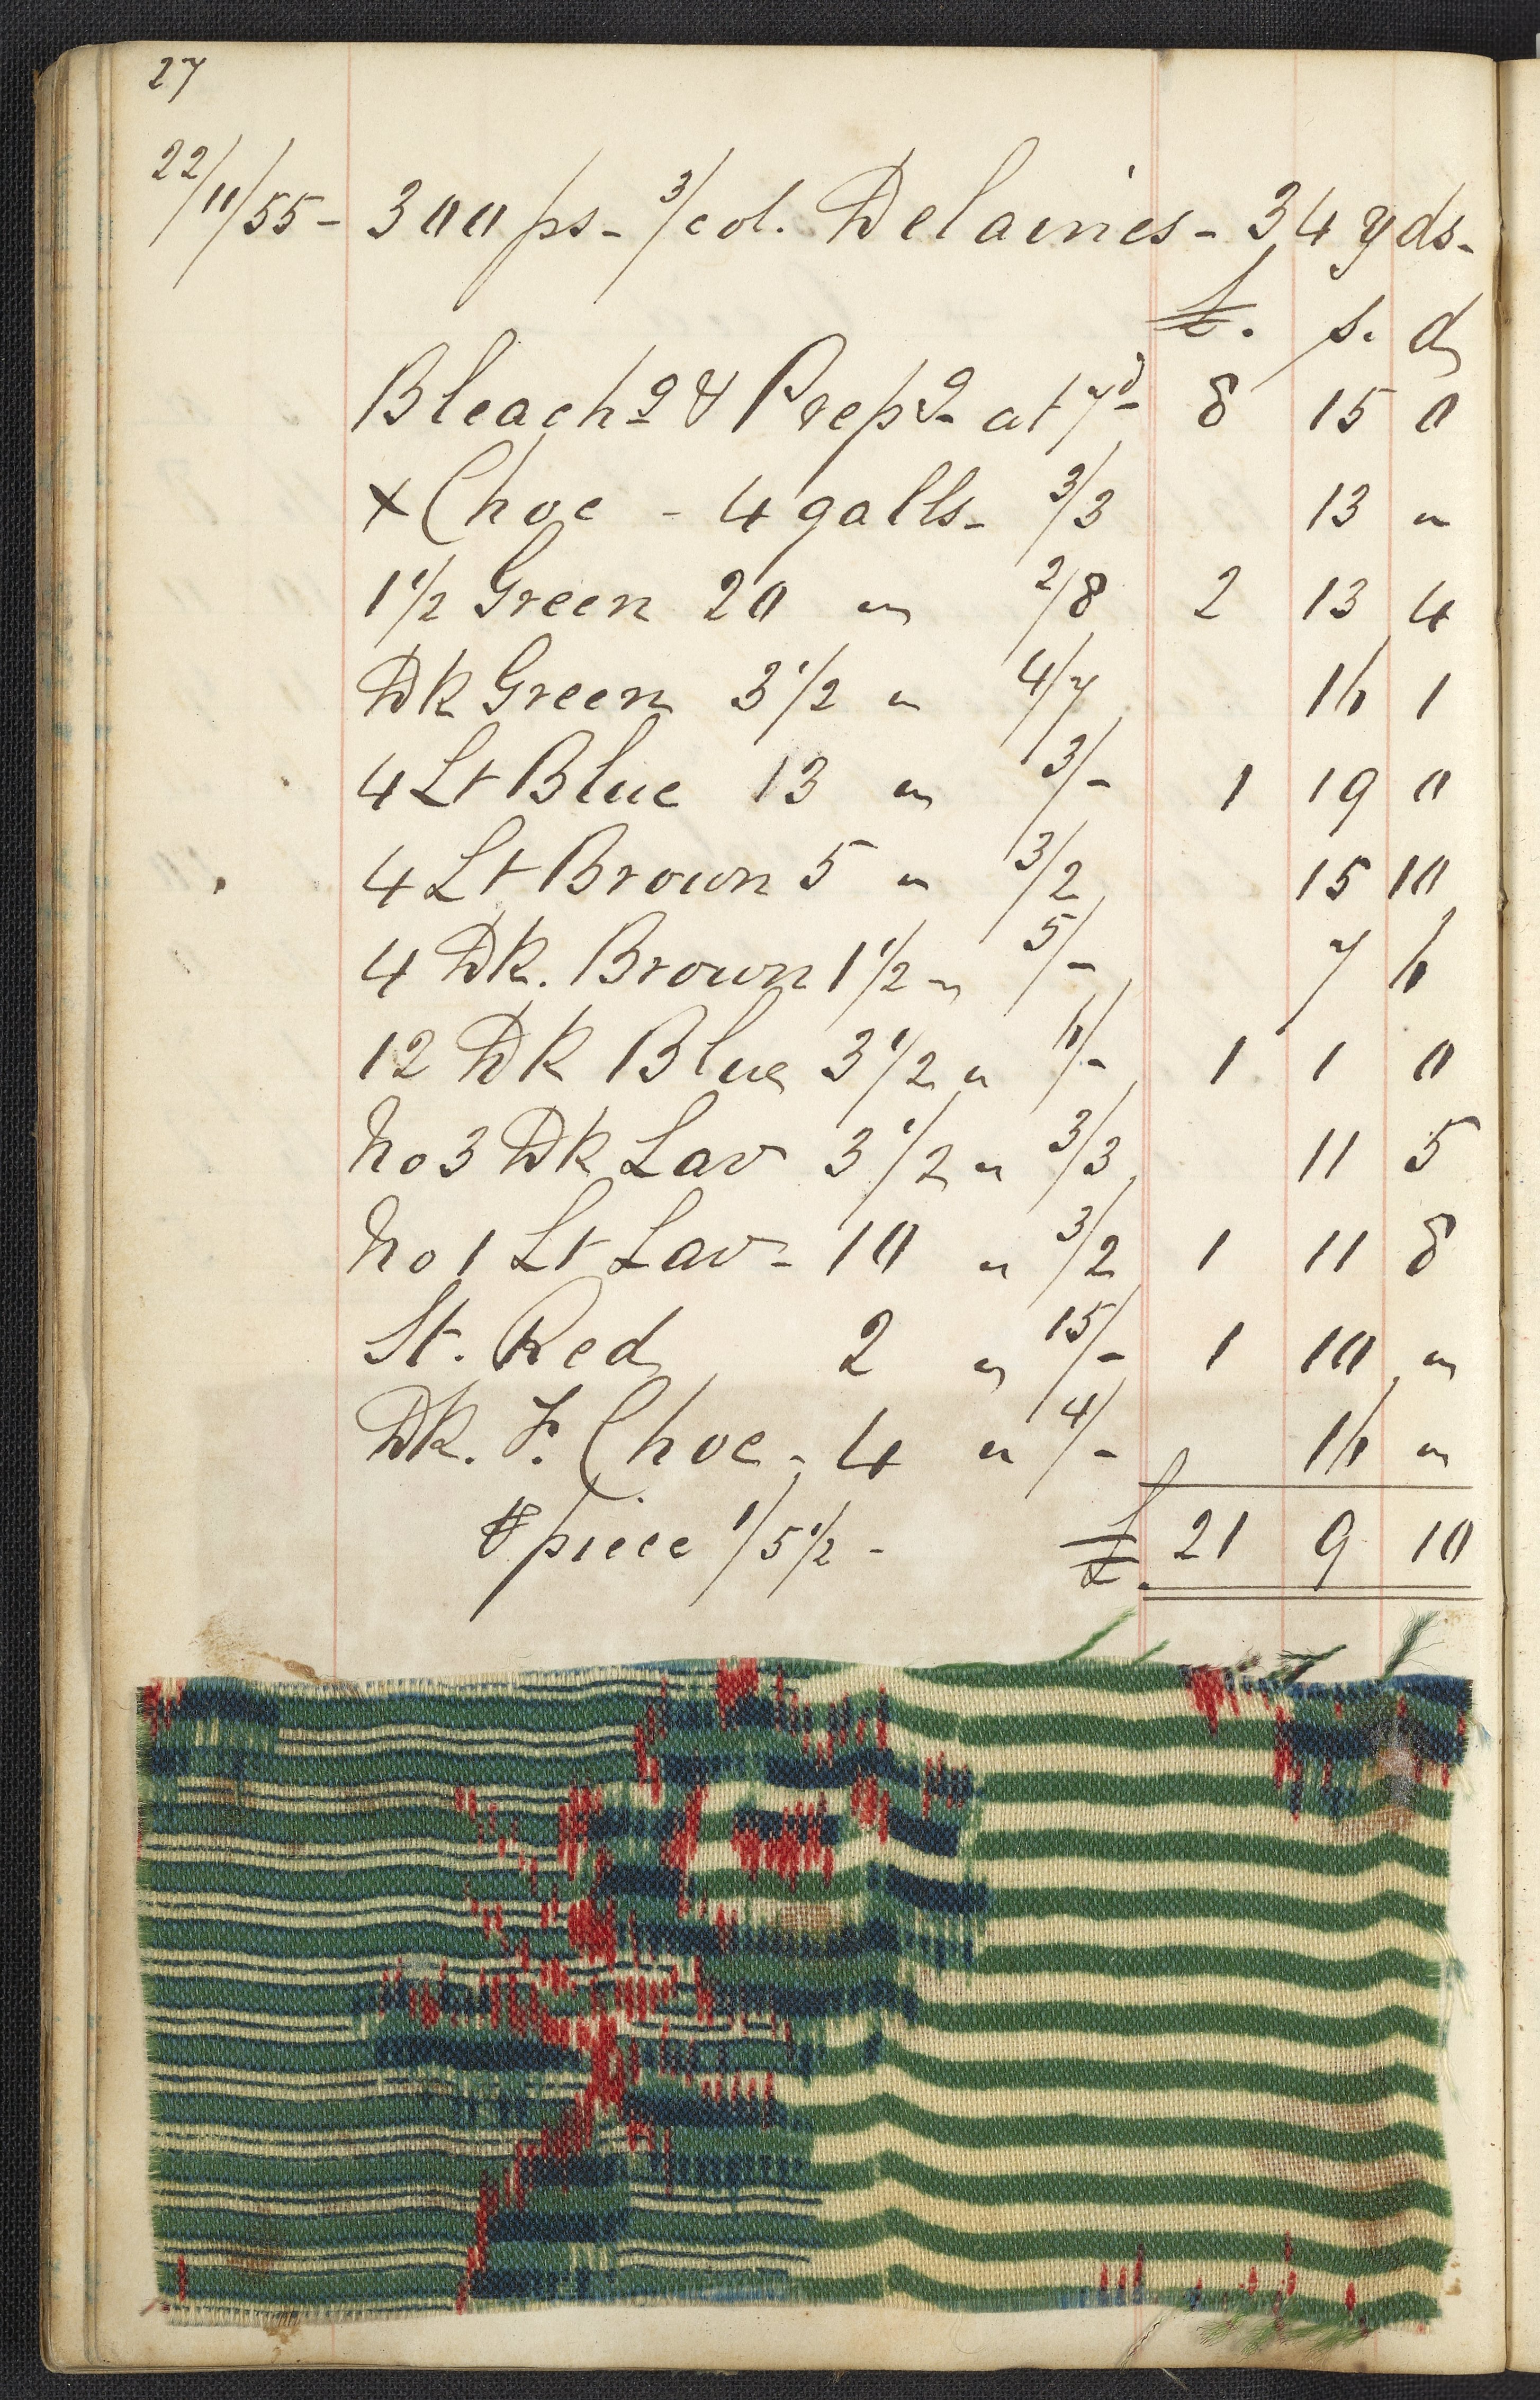 27
22/11/55 - 300 ps - 3/col. Delaines - 34 yds -
£. s. d
Bleachg & Prepg - at 7d 8 15 0
x Choc - 4 galls - 3/3 13 "
1 1/2 Green 20 " 2/8 2 13 4
Dk Green 3 1/2 " 4/7 16 1
4 Lt Blue 13 " 3/- 1 19 0
4 Lt Brown 5 " 3/2 15 10
4 Dk. Brown 1 1/2 " 5/- 7 6
12 Dk Blue 3 1/2 " 6/- 1 1 0
No 3 Dk Lav 3 1/2 " 3/3 11 5
No 1 Lt Lav - 10 " 3/2 1 11 8
St. Red 2 " 15/- 1 10 "
Dk. F. Choc - 4 " 4/- 16 "
℔ piece 1/5 1/2 - £ 21 9 10